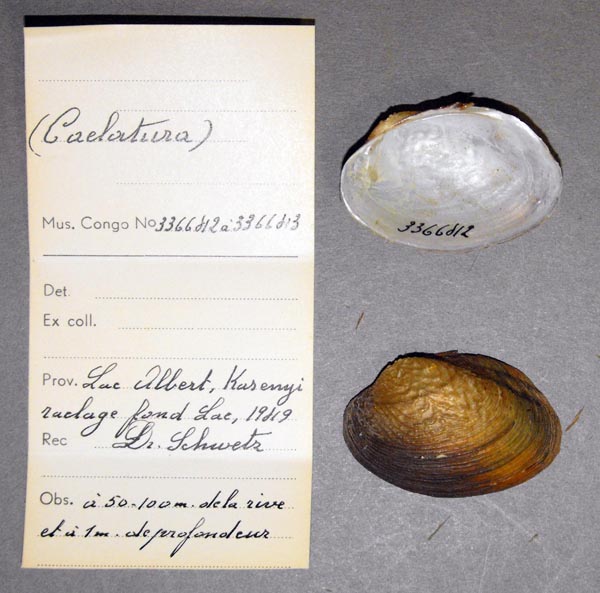 (Caelatura)
Mus. Congo No à
Det.
Ex coll.
Prov. Lac Albert, Kasenyi
raclage fond Lac,
Rec Dr. Schwetz
Obs. à 50-100m. de la rive
et à 1m. de profondeur